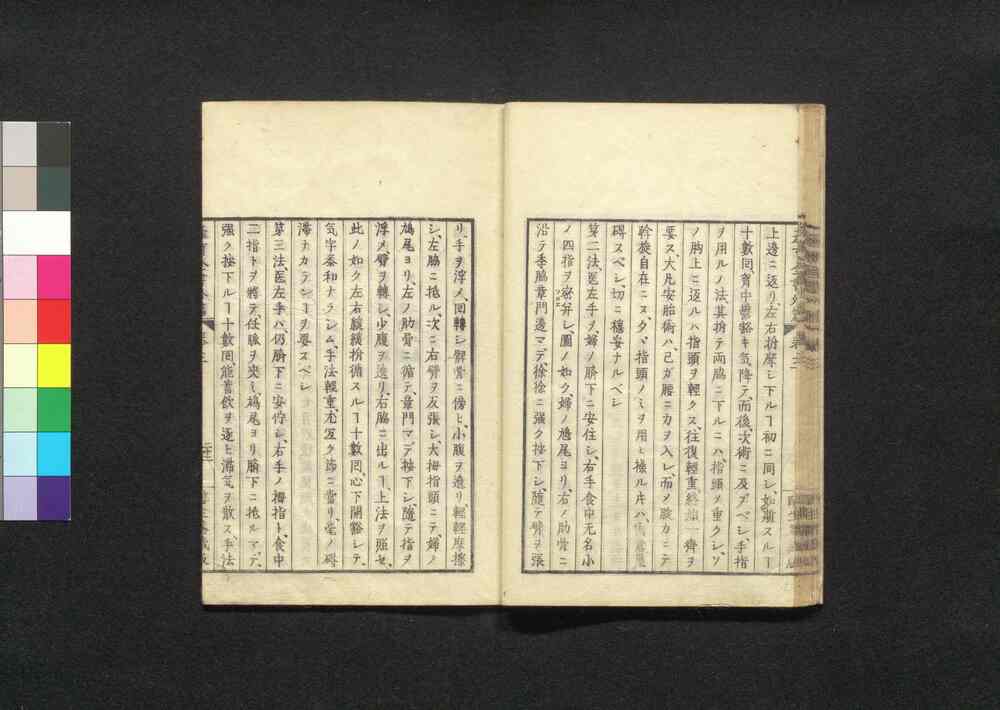 上邊ニ返リ、左右拊摩シ下ルヿ初ニ同シ、如斯スルヿ
十數囘、胷中豁キ気降テ、而後、次術ニ及ブベシ、手指
ヲ用ルノ法、其拊テ兩脇ニ下ルニハ、指頭ヲ重クシ、ソ
ノ胸上ニ返ルハ指頭ヲ輕クス、往復輕重、一齊ヲ
要ス、大凡安胎術ハ、己ガ腰ニ力ヲ入レ、而メ腋カニテ
斡旋自在ニス、タヾ指頭ノミヲ用ヒ操ル片ハ、
碍スベシ、切ニ穩妥ナルベシ
第二法、医左手ヲ、婦ノ臍下ニ安住シ、右手食中无名小
ノ四指ヲ密并シ、圖ノ如ク、婦ノ鳩尾ヨリ、右ノ肋骨ニ
沿テ季脇章門邊マデ、徐徐ニ强ク按下シ、随テ臂ヲ張
リ、手ヲ浮メ、囘轉シ髀骨ニ傍ヒ、小腹ヲ遶リ、輕輕摩擦
シ、左脇ニ抵ル、次ニ右臂ヲ反張シ、大拇指頭ニテ、婦ノ
鳩尾ヨリ、左ノ肋骨ニ循テ、章門マデ按下シ、随テ指ヲ
浮メ、臂ヲ轉シ、少腹ヲ遶リ、右脇ニ出ルヿ、上法ヲ照セ、
此ノ如ク左右緩緩拊循スルヿ十數囘、心下開豁シテ、
気宇泰和ナラシム、手法輕重、尤宐ク節ニ當リ、毫ノ碍
滞カカラン
第三法、医左手ハ、仍臍下ニ安佇シ、右手ノ拇指ト、食中
二指トヲ將テ、任脈ヲ夾ミ、鳩尾ヨリ臍下ニ抵ルマデ、
强ク按下ルヿ十數囘、能蓄飲ヲ逐ヒ滞気ヲ散ス、手法